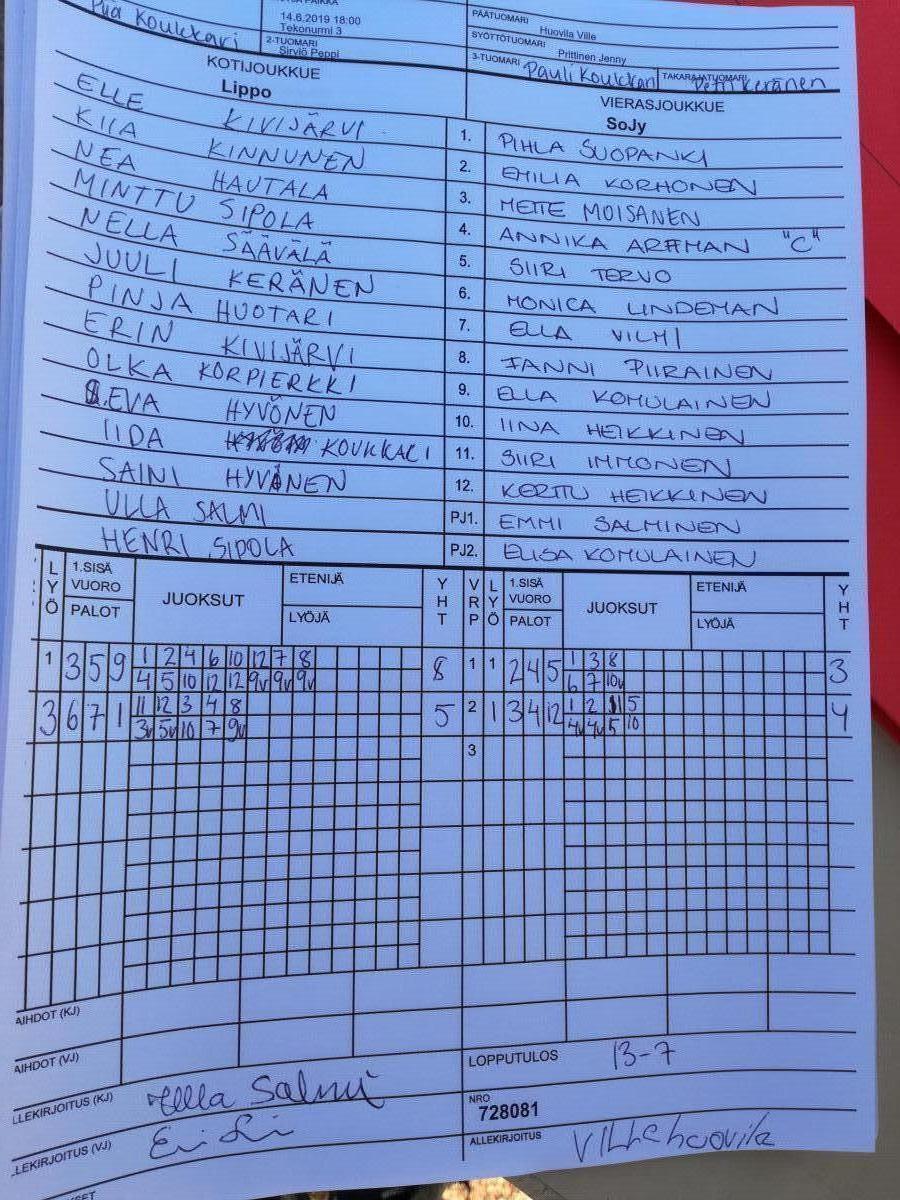 Piia Koukkari
14.6.2019 18:00
Tekonurmi 3
2-TUOMARI
Sirviö Peppi
PÄÄTUOMARI
Huovila Ville
SYÖTTÖTUOMARI
Prittinen Jenny
3-TUOMARI Pauli Koukkari TAKARAJATUOMARI Petri Keränen
KOTIJOUKKUE
Lippo
VIERASJOUKKUE
SoJy
ELLE KIVIJÄRVI 1. PIHLA SUOPANKI
KIIA KINNUNEN 2. EMILIA KORHONEN
NEA HAUTALA 3. METTE MOISANEN
MINTTU SIPOLA 4. ANNIKA ARFFMAN "C"
NELLA SÄÄVÄLÄ 5. SIIRI TERVO
JUULI KERÄNEN 6. MONICA LINDEMAN
PINJA HUOTARI 7. ELLA VILMI
ERIN KIVIJÄRVI 8. FANNI PIIRAINEN
OLKA KORPIERKKI 9. ELLA KOMULAINEN
EVA HYVÖNEN 10. IINA HEIKKINEN
IIDA KOUKKARI 11. SIIRI IMMONEN
SAINI HYVÖNEN 12. KERTTU HEIKKINEN
ULLA SALMI PJ1. EMMI SALMINEN
HENRI SIPOLA PJ2. ELISA KOMULAINEN
LYÖ 1.SISÄ VUORO PALOT JUOKSUT ETENIJÄ LYÖJÄ YHT VRP LYÖ 1.SISÄ VUORO PALOT JUOKSUT ETENIJÄ LYÖJÄ YHT
1 3 5 9 1 2 4 6 10 12 7 8 8 1 1 2 4 5 1 3 8 3
4 5 10 12 12 9v 9v 9v 6 7 10v
3 6 7 1 11 12 3 4 8 5 2 1 3 4 12 1 2 11 5 4
3v 5v 10 7 9v 4v 4v 5 10
3
AIHDOT (KJ)
AIHDOT (VJ)
LOPPUTULOS 13-7
LLEKIRJOITUS (KJ) Ulla Salmi
NRO
728081
LLEKIRJOITUS (VJ)
ALLEKIRJOITUS Ville huovila